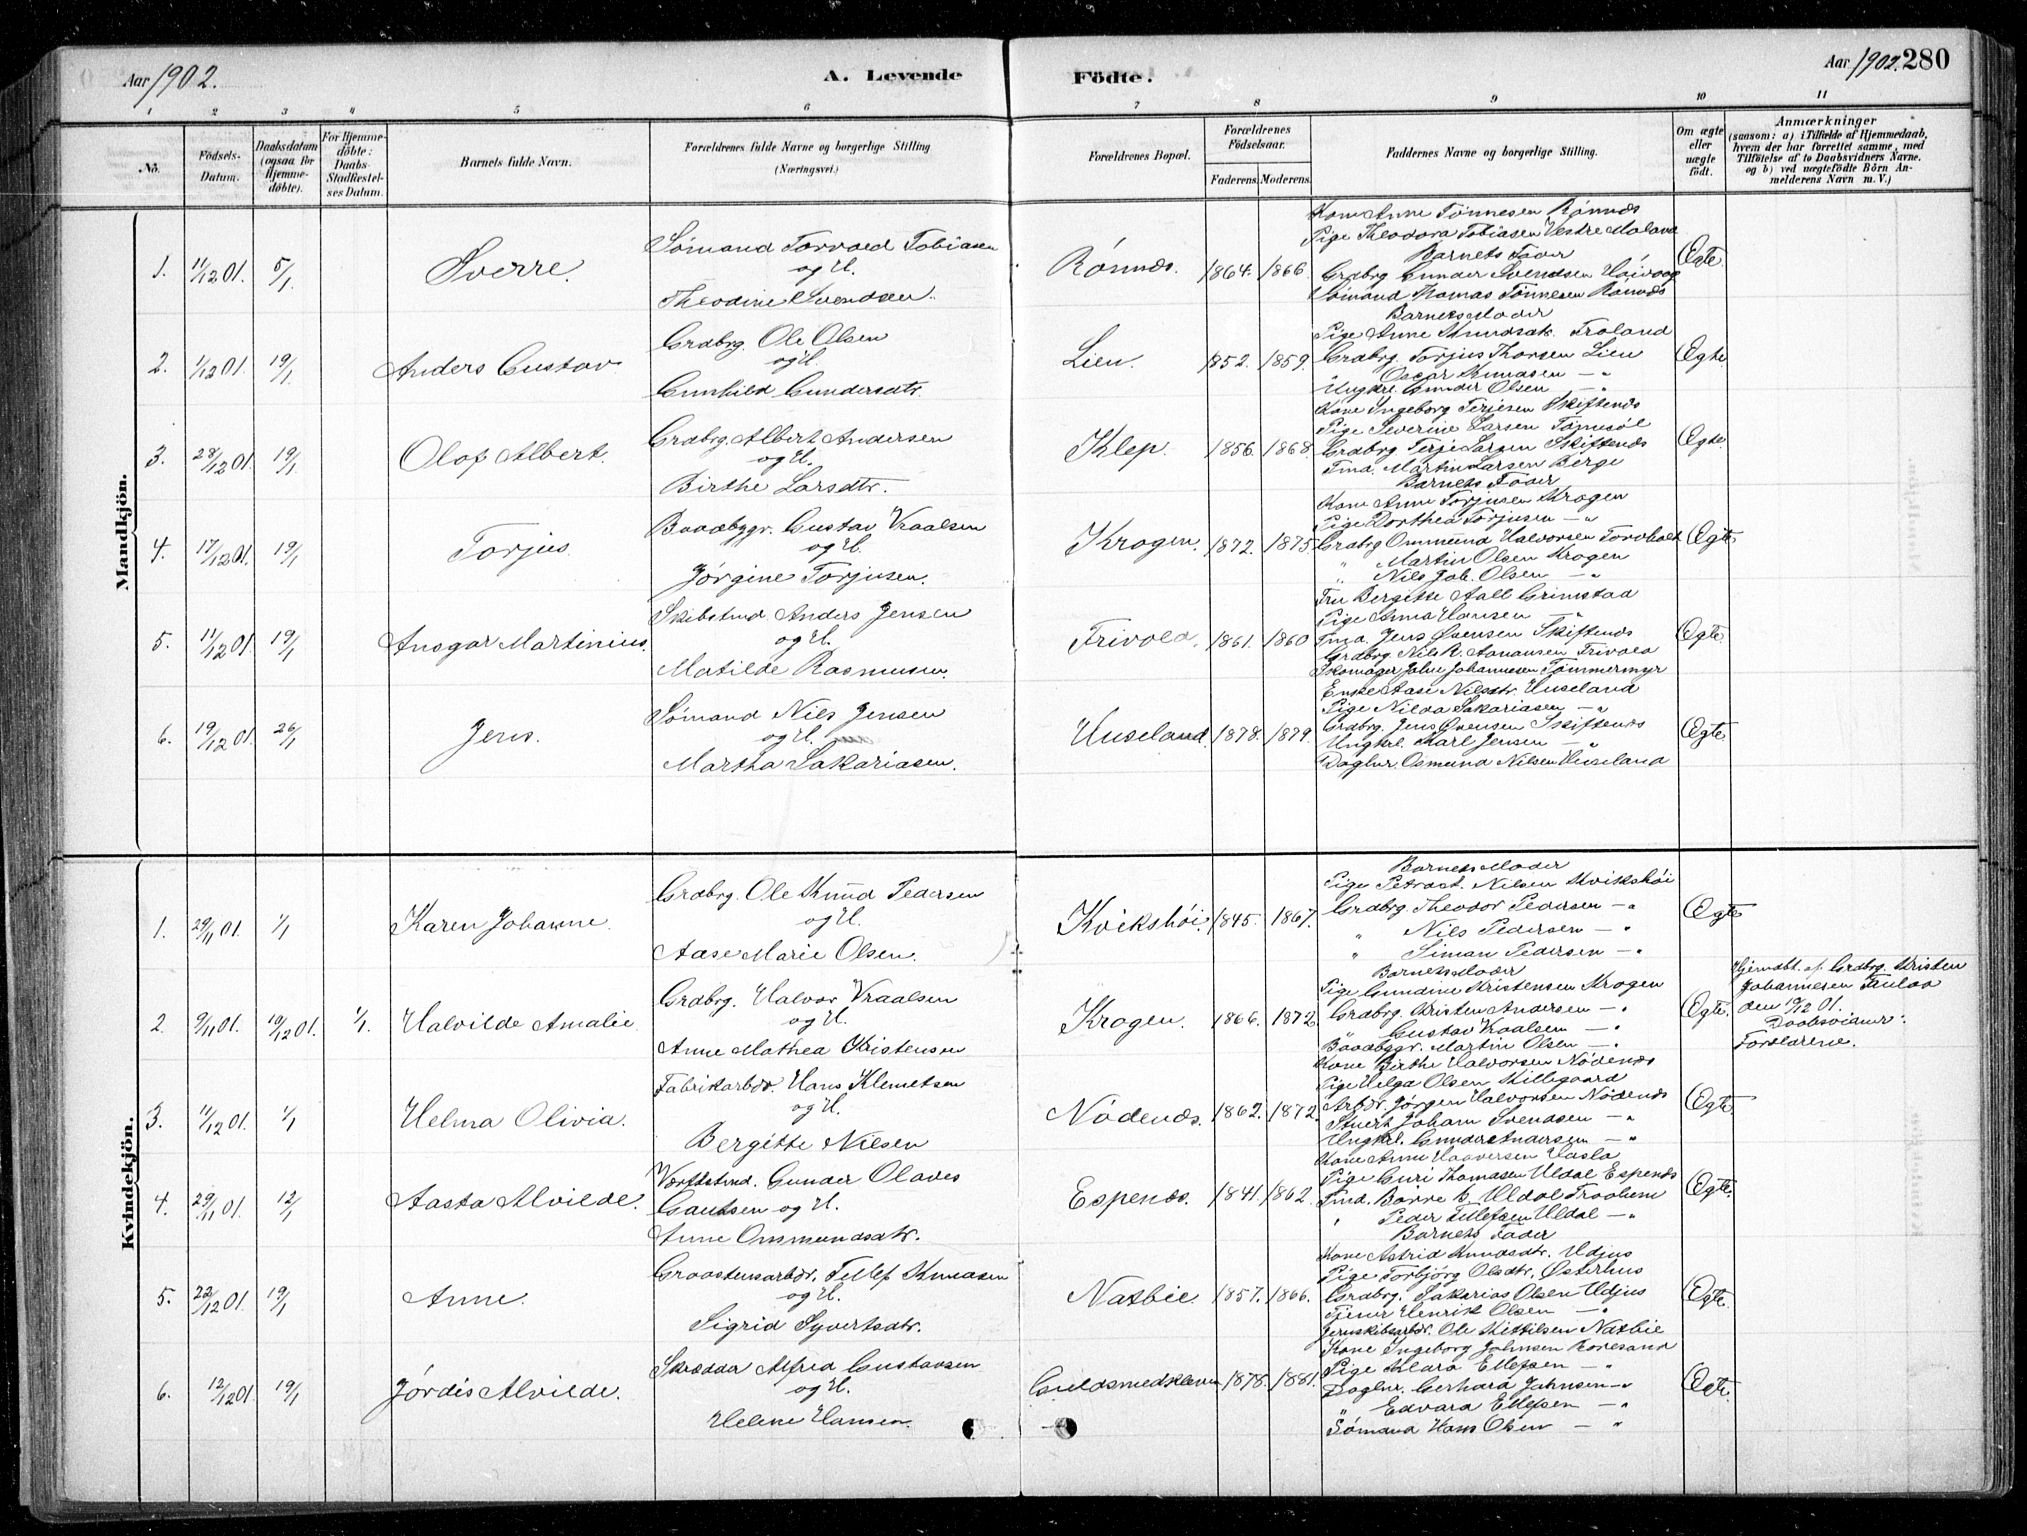 Aar 1902.
A. Levende Födte.
Aar 1902. 280
1 2 3 4 5 6 7 8 9 10 11
No.
Födsels-Datum.
Daabsdatum (ogsaa for Hjemme-döbte).
For Hjemme-döbte: Daabs-Stadfæstel-ses Datum.
Barnets fulde Navn.
Forældrenes fulde Navne og borgerlige Stilling (Næringsvei.)
Forældrenes Bopæl.
Forældrenes Födselsaar.
Faderens. Moderens.
Faddernes Navne og borgerlige Stilling.
Om ægte eller uægte födt.
Anmærkninger
(saasom: a) i Tilfælde af Hjemmedaab,
hvem der har forrettet samme, med
Tilföielse af to Daabsvidners Navne.
og b) ved uægtefödte Börn An-
melderens Navn m. V.)
Mandkjön.
1. 11/12 01. 5/1 Sverre.
Sömand Torvald Tobiasen
og H.
Theodine Svendsen.
Rönnæs. 1864. 1866.
Kone Anne Tönnesen Rönnæs
Pige Theodora Tobiasen Vestre Moland
Barnets Fader
Grdbrg Gunder Svendsen Höivaag
Sömand Thomas Tönnesen Rönnæs
Ægte.
2. 1/12 01. 19/1. Anders Gustav
Grdbrg. Ole Olsen
og H.
Gunhild Gundersdtr.
Lien. 1852. 1859.
Barnets Moder
Pige Anne Knudsdtr. Froland
Grdbrg. Torjus Thorsen Lien
Oscar Knudsen — "
Ungkrl. Gunder Olsen — "
Ægte.
3. 28/12 01. 19/1. Olaf Albert.
Grdbrg. Albert Andersen
og H.
Birthe Larsdtr.
Klep. 1856. 1868.
Kone Ingeborg Terjesen Skiftenæs
Pige Severine Larsen Tönnesöl
Grdbrg Terje Larsen Skiftenæs
Tmd. Martin Larsen Berge
Barnets Fader
Ægte.
4. 17/12 01. 19/1 Torjus.
Baadbyggr. Gustav Vraalsen
og H.
Jörgine Torjusen.
Krogen. 1872. 1875.
Kone Anne Torjusen Krogen
Pige Dorthea Torjusen — "
Grdbrg Ommund Halvorsen Torvholt
" Martin Olsen Krogen
" Nils Joh. Olsen — "
Ægte.
5. 11/12 01. 19/1 Ansgar Martinius.
Skibstmd Anders Jensen
og H.
Matilde Rasmusen.
Frivold. 1861. 1860
Fru Bergitte Aall Grimstad
Pige Anna Hansen — "
Tmd. Jens Ovensen Skiftenæs
Grdbrg Nils R. Aanansen Frivold
Skomager Johs Johannesen Tömmermyr
Ægte.
6. 19/12 01. 26/1 Jens.
Sömand Nils Jensen
og H.
Martha Sakariasen.
Huseland. 1878. 1879.
Enke Aase Nilsdtr. Huseland
Pige Nilda Sakariasen — "
Grdbrg. Jens Ovensen Skiftenæs
Ungkrl. Karl Jensen — "
Daglnr. Osmund Nilsen Huseland
Ægte.
Kvindekjön.
1. 29/11 01. 1/1 Karen Johanne.
Grdbrg. Ole Knud Pedersen
og H.
Aase Marie Olsen.
Kvikshöi. 1845. 1867.
Barnets Moder
Pige Petra Nilsen Kvikshöi
Grdbrg Theodor Pedersen — "
" Nils Pedersen — "
" Simon Pedersen — "
Ægte
2. 9/11 01. 10/12 01. 1/1. Halvilde Amalie.
Grdbrg. Halvor Vraalsen
og H.
Anne Mathea Kristensen
Krogen. 1866. 1872.
Barnets Moder
Pige Gundine Kristensen Krogen
Grdbrg. Kristen Andersen — "
" Gustav Vraalsen — "
Baadbyggr. Martin Olsen — "
Ægte.
Hjemdbt. af Grdbrg. Kristen
Johannesen
den 10/12 01.
Daabsvidner:
Forældrene.
3. 11/12 01. 1/1 Helma Olivia.
Fabrikarbdr. Hans Klemetsen
og H.
Bergitte Nilsen
Nödenæs. 1862. 1872.
Kone Birthe Halvorsen Nödenæs
Pige Helga Olsen Killegaard
Arbdr. Jörgen Halvorsen Nödenæs
Stuert Johan Svendsen — "
Ungkrl. Gunder Andersen — "
Ægte.
4. 29/11 01. 12/1 Aasta Alvilde.
Værftstmd. Gunder Olaves
Gautsen og H.
Anne Ommundsdtr.
Espenæs. 1841. 1862.
Kone Anne Haaversen Hasla
Pige Guri Thomasen Uldal Espenæs
Tmd. Börre K. Uldal Troohem
" Peder Tellefsen Uldal — "
Barnets Fader
Ægte.
5. 22/12 01. 19/1 Anne.
Graastensarbdr. Tellef Knudsen
og H.
Sigrid Syvertsdtr.
Natbie. 1857. 1866.
Kone Astrid Knudsdtr. Udjus
Pige Torbjörg Olsdtr. Österhus
Grdbrg. Sakarias Olsen Udjus
Tjener Henrik Olsen — "
Jernskibsarbdr. Ole Kittilsen Natbie
Ægte.
6. 12/12 01. 19/1 Jördis Alvilde.
Skrædder Alfred Gustavsen
og H.
Helene Hansen.
Guldsmedkleven 1878. 1881.
Kone Ingeborg Johnsen Roresand
Pige Klara Ellefsen — "
Daglnr. Gerhard Johnsen — "
" Edvard Ellefsen — "
Sömand Hans Olsen — "
Ægte.